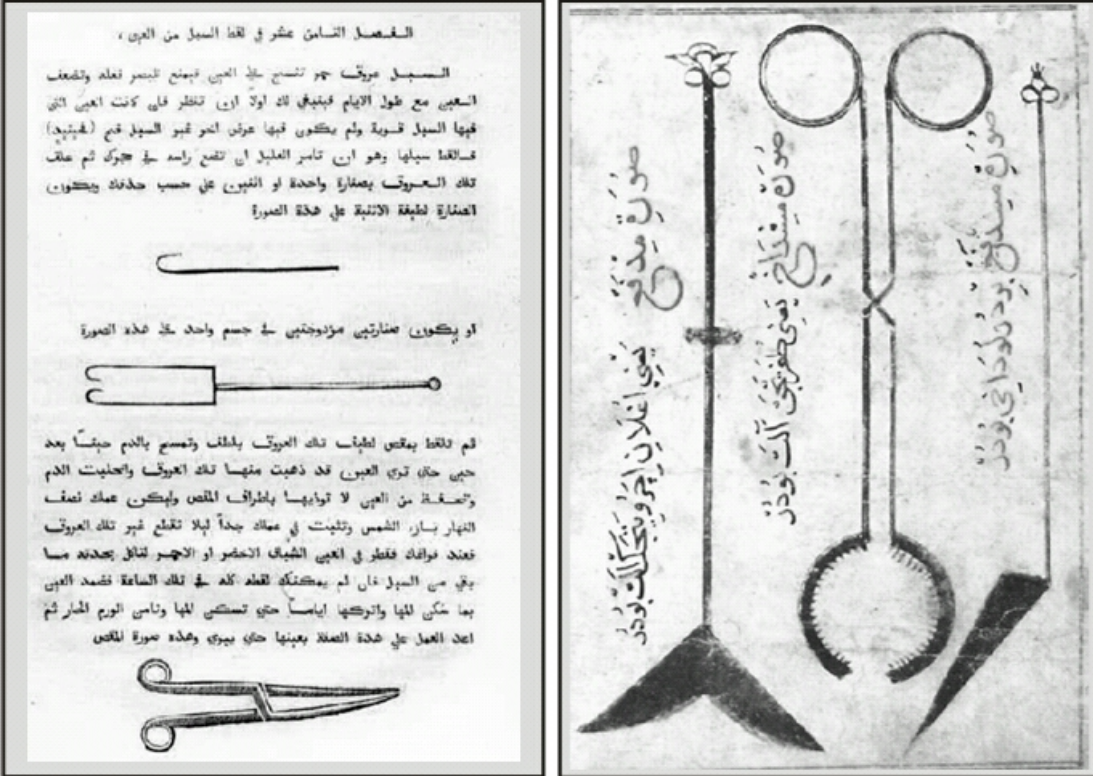 الفصل الثامن عشر في لقط السبل من العين
السبل عروق حمر تنتسج على العين فتمنع البصر فعله وتضعف
العين مع طول الايام فينبغي لك اولا ان تنظر فان كانت العين التي
فيها السبل قوية ولم يكون فيها مرض اخر غير السبل فح (فحينيذ)
فالقط سبلها وهو ان تامر العليل ان تضع راسه في حجرك ثم علق
تلك العروق بصنارة واحدة او اثنين على حسب حذقك ويكون
الصنارة لطيفة الانثنية على هذه الصورة
او يكون صنارتين مزدوجتين في جسم واحد على هذه الصورة
ثم تلقط بمقص لطيف تلك العروق بلطف وتمسح بالدم حيناً بعد
حين حتى ترى العين قد ذهبت منها تلك العروق وانحنيت الدم
وتحفظ من العين لا توذيها باطراف المقص وليكون عملك نصف
النهار بازاء الشمس وتثبت في عملك جداً ليلا تقطع غير تلك العروق
فعند فراغك فقطر في العين الشياف الاخضر او الاحمر لتاكل بحدته ما
بقي من السبل فان لم يمكنك لقطه كله في تلك الساعة فضمد العين
بما يسكن المها واتركها اياماً حتى تسكن المها وتامن الورم الحار ثم
اعد العمل على هذه الصفة بعينها حتى يبرى وهذه صورة المقص
صورة مدفع
يعني اغلان آلت بودر
صورة مشداخ يعني آلت بودر
صورة بودر بودر